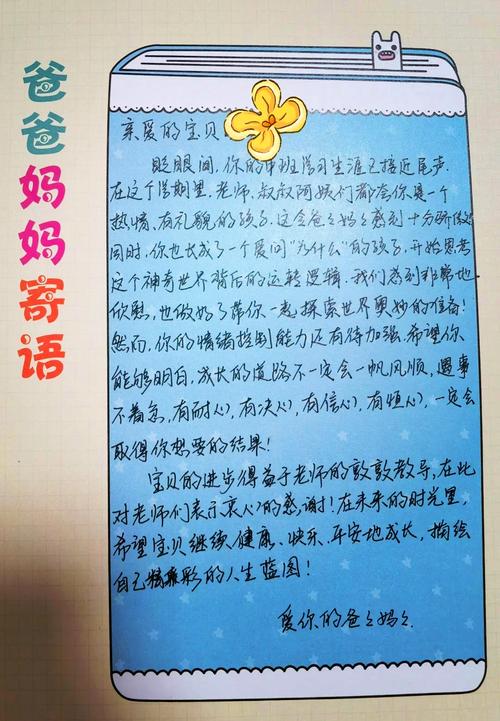 爸爸妈妈寄语
亲爱的宝贝
眨眼间，你的中班学习生涯已接近尾声.
在这个学期里，老师、叔叔阿姨们都夸你是个
热情、有礼貌的孩子，这令爸爸妈妈感到十分骄傲
同时，你也长成了一个爱问“为什么”的孩子，开始思考
这个神奇世界背后的运转逻辑，我们感到非常地
欣慰，也做好了带你一起探索世界奥妙的准备！
然而，你的情绪控制能力还有待加强，希望你
能够明白，成长的道路不一定会一帆风顺，遇事
不着急，有耐心，有决心，有信心，有恒心，一定会
取得你想要的结果！
宝贝的进步得益于老师的敦敦教导，在此
对老师们表示衷心的感谢！在未来的时光里，
希望宝贝继续健康、快乐、平安地成长，描绘
自己精彩的人生蓝图！
爱你的爸爸妈妈